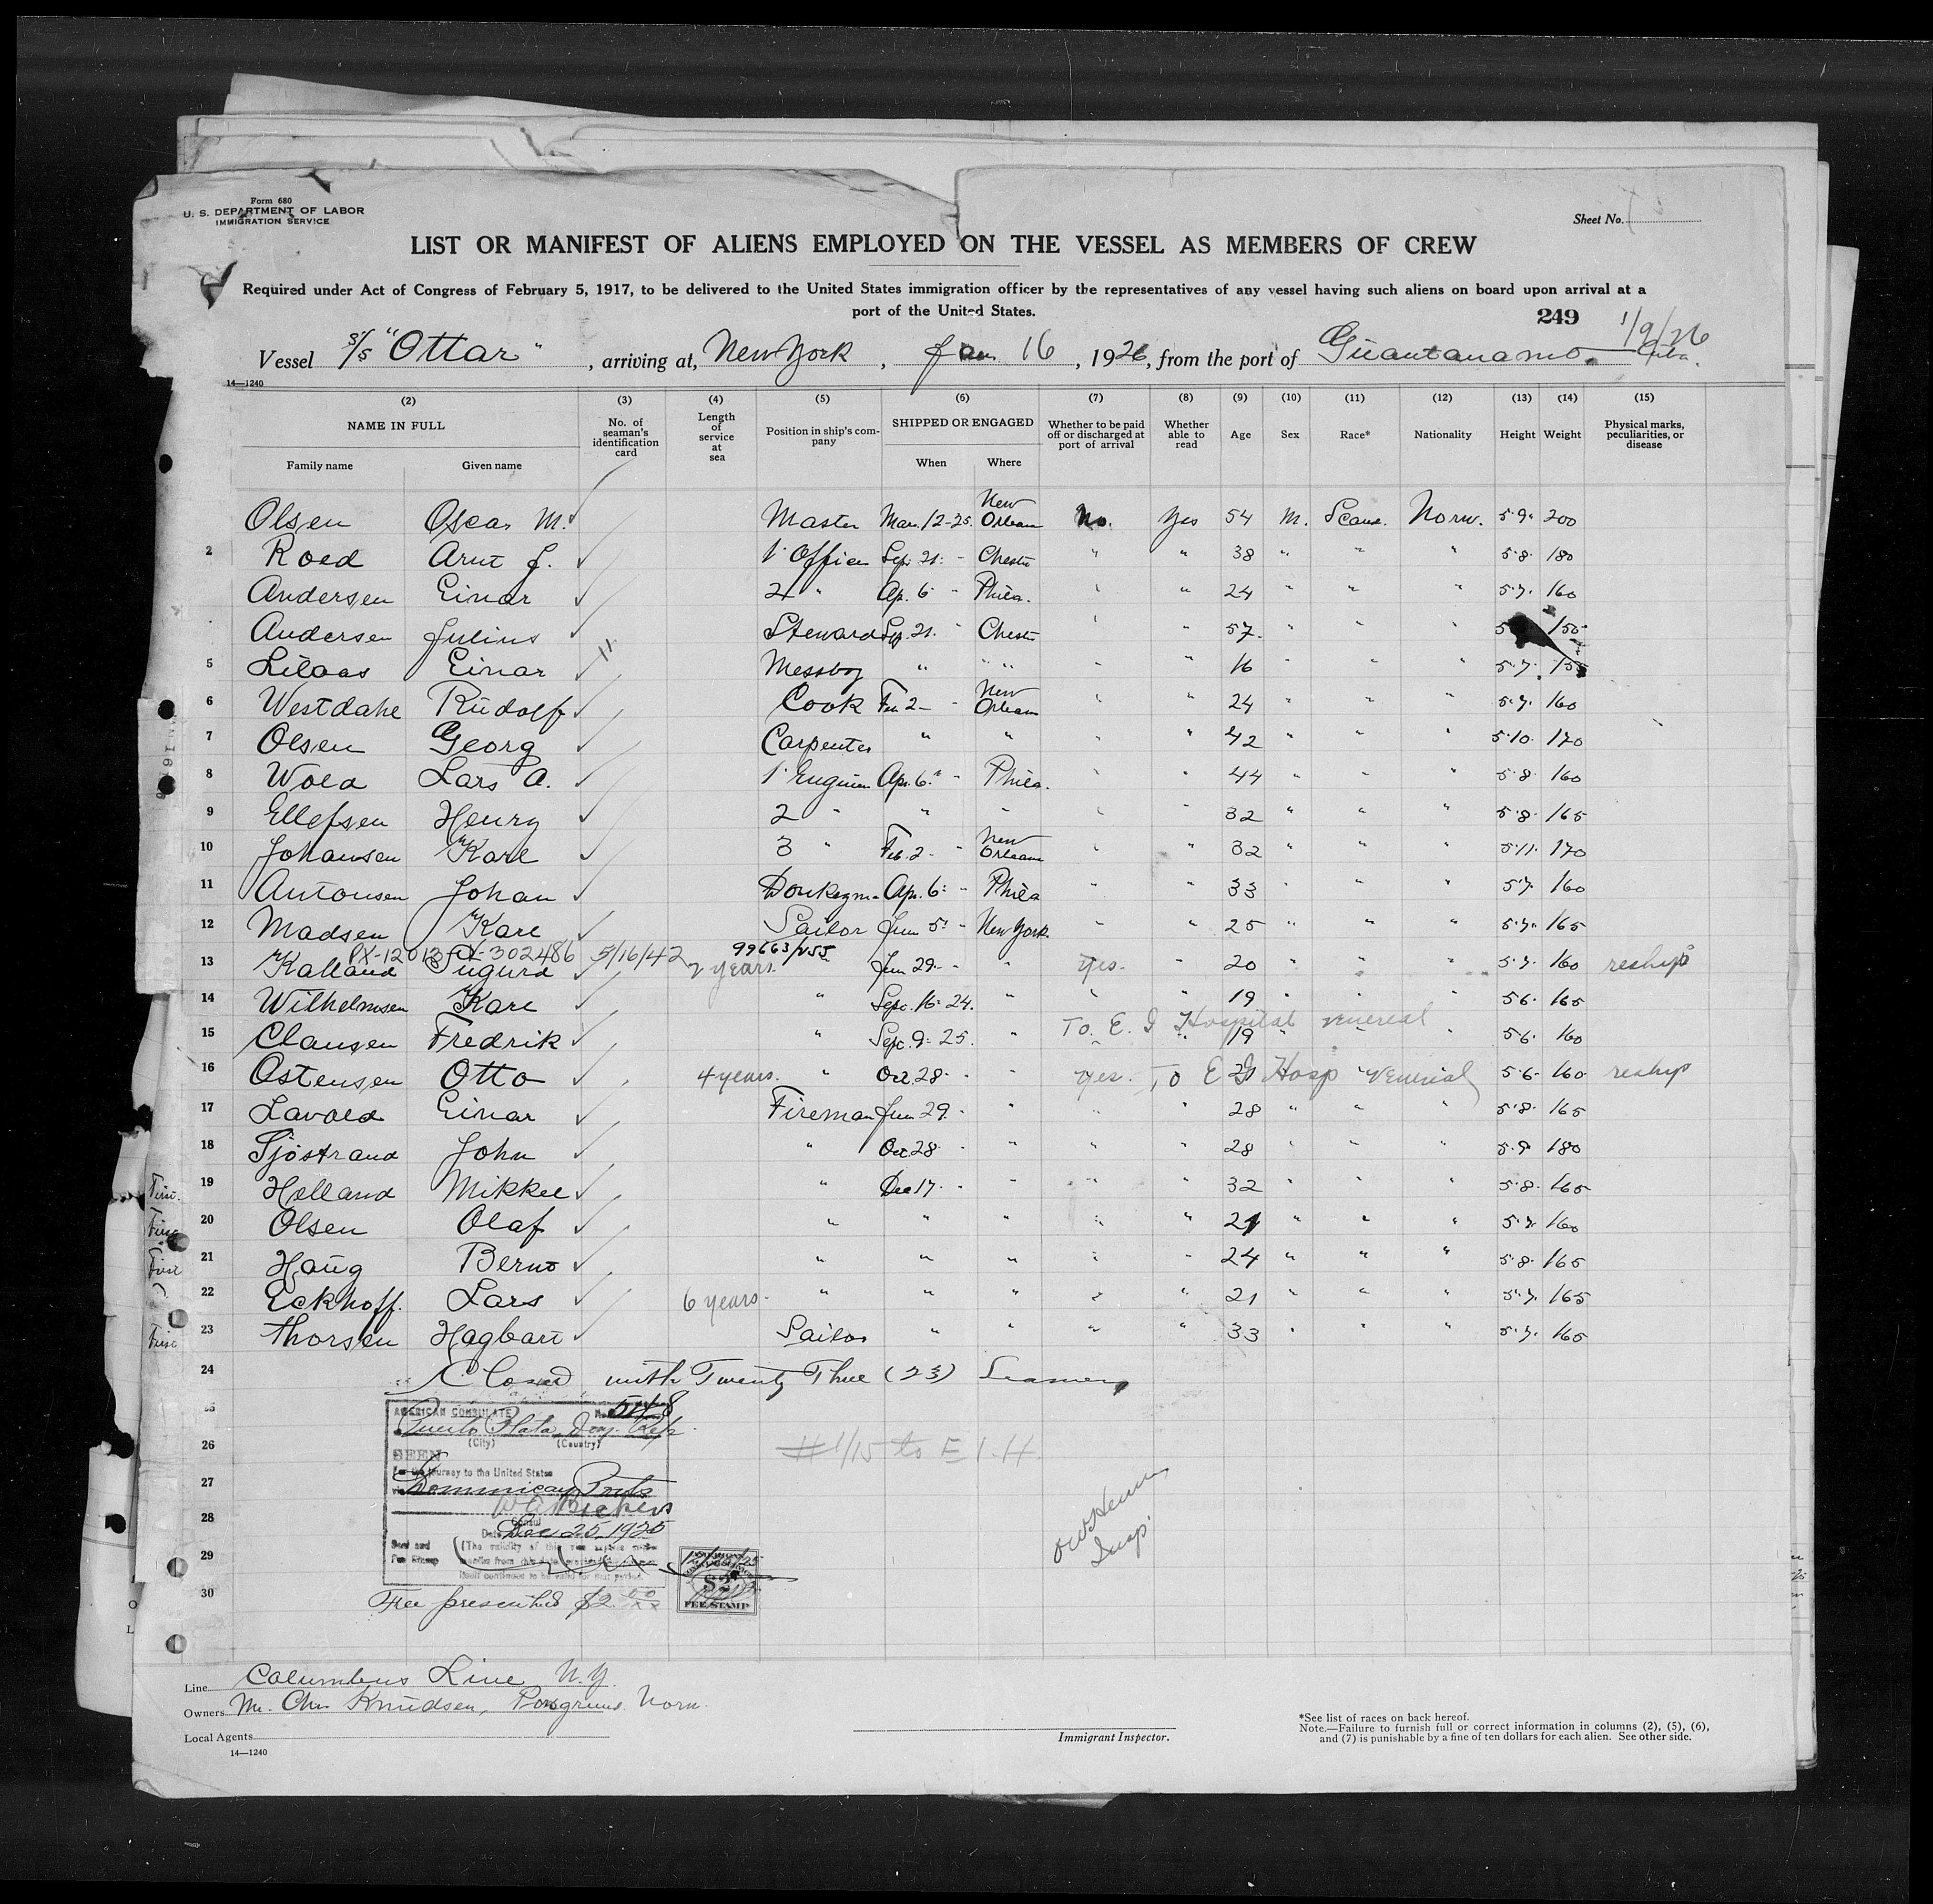 Form 680
U. S. DEPARTMENT OF LABOR
IMMIGRATION SERVICE
Sheet No.
LIST OR MANIFEST OF ALIENS EMPLOYED ON THE VESSEL AS MEMBERS OF CREW
Required under Act of Congress of February 5, 1917, to be delivered to the United States immigration officer by the representatives of any vessel having such aliens on board upon arrival at a
port of the United States.
249 1/9/26
Vessel S/S "Ottar", arriving at, New York, Jan 16, 1926, from the port of Guantanamo Cuba.
14—1240
(2) (3) (4) (5) (6) (7) (8) (9) (10) (11) (12) (13) (14) (15)
NAME IN FULL No. of seaman's identification card Length of service at sea Position in ship's company SHIPPED OR ENGAGED Whether to be paid off or discharged at port of arrival Whether able to read Age Sex Race* Nationality Height Weight Physical marks, peculiarities, or disease
Family name Given name When Where
Olsen Oscar M. Master Mar. 12-25. New Orleans No. Yes 54 M. Scand. Norw. 5.9. 200
2 Roed Arnt J. 1. Officer Sep. 21. - Chester " " 38 " " " 5.8. 180
Andersen Einar 2 " Ap. 6 - Phila. " " 24 " " " 5.7. 160
Andersen Julius Steward Sep. 21. " Chester " " 57. " " " 5 150
5 Lilaas Einar Messboy " " " " " 16 " " " 5.7.
6 Westdahl Rudolf Cook Feb 2 - " New Orleans " " 24 " " " 5.7. 160
7 Olsen Georg Carpenter " " " " 42 " " " 5.10. 170
8 Wold Lars A. 1. Engineer Apr. 6. " - Phila. " " 44 " " " 5.8 160
9 Ellefsen Henry 2 " " " " " 32 " " " 5.8. 165
10 Johansen Karl 3 " Feb. 2 - " New Orleans " " 32 " " " 5.11. 170
11 Antonsen Johan Donkeym. Apr. 6. - Phila " " 33 " " " 5.7. 160
12 Madsen Karl Sailor Jun 5. - New York. " " 25 " " " 5.7. 165
PX-12013 302486 5/16/42 99663/255
13 Kalland Sigurd 2 years. Jun 29. - " Yes. " 20 " " " 5.7. 160 reship
14 Wilhelmsen Karl " Sep. 16- 24. " " " 19 " " " 5.6. 165
To. E. I Hospital venereal
15 Clausen Fredrik " Sep. 9- 25. " " " 19 " 5.6. 160
16 Ostensen Otto 4 years. " Oct 28. - " Yes. To E I Hosp Venereal 5.6. 160 reship
17 Lavold Einar Fireman Jun 29. - " " " 28 " " " 5.8. 165
18 Sjöstrand John " Oct 28. - " " " 28 " " " 5.9 180
19 Helland Mikkel " Dec 17. - " " " 32 " " " 5.8. 165
20 Olsen Olaf " " " " " 21 " " " 5.7. 160
21 Haug Bernt " " " " " 24 " " " 5.8. 165
22 Eckhoff. Lars 6 years. " " " " " 21 " " " 5.7. 165
23 Thorsen Hagbart Sailor " " " " 33 " " " 5.7. 165
24 Closed with Twenty Three (23) Seamen
25
AMERICAN CONSULATE
Puerto Plata Dom. Rep.
(City) (Country)
26 # 1/15 to E I. H.
SEEN
For the journey to the United States
27 via Dominican Ports
28
Consul
Date Dec 25 1925
29
Seal and Fee Stamp (The validity of this visa
30
$2
FEE STAMP
Fee prescribed $2.00
Insp.
Line Columbus Line N.Y.
Owners Mr. Chr Knudsen, Porsgrund Norw.
Local Agents
14—1240
Immigrant Inspector.
*See list of races on back hereof.
Note.—Failure to furnish full or correct information in columns (2), (5), (6),
and (7) is punishable by a fine of ten dollars for each alien. See other side.